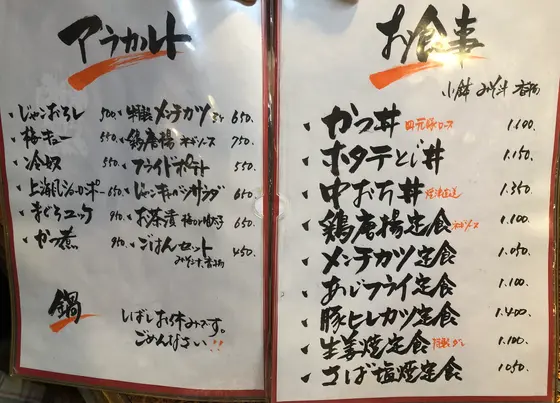 アラカルト
じゃこおろし 500
梅きゅー 550
冷奴 550
上海風 650
まぐろユッケ 950
かつ煮 950
特製メンチカツ 650
鶏唐揚 ネギソース 750
フライドポテト 550
サラダ 650
お茶漬 650
ごはんセット 450
みそ汁、香物
鍋
しばしお休みです。
ごめんなさい!!
お食事
小鉢 みそ汁 香物
かつ丼 四元豚ロース 1.100
ホタテとじ丼 1.150
中おち丼 1.350
鶏唐揚定食 ネギソース 1.100
メンチカツ定食 1.050
あじフライ定食 1.100
豚ヒレカツ定食 1.400
生姜焼定食 1.100
さば塩焼定食 1050